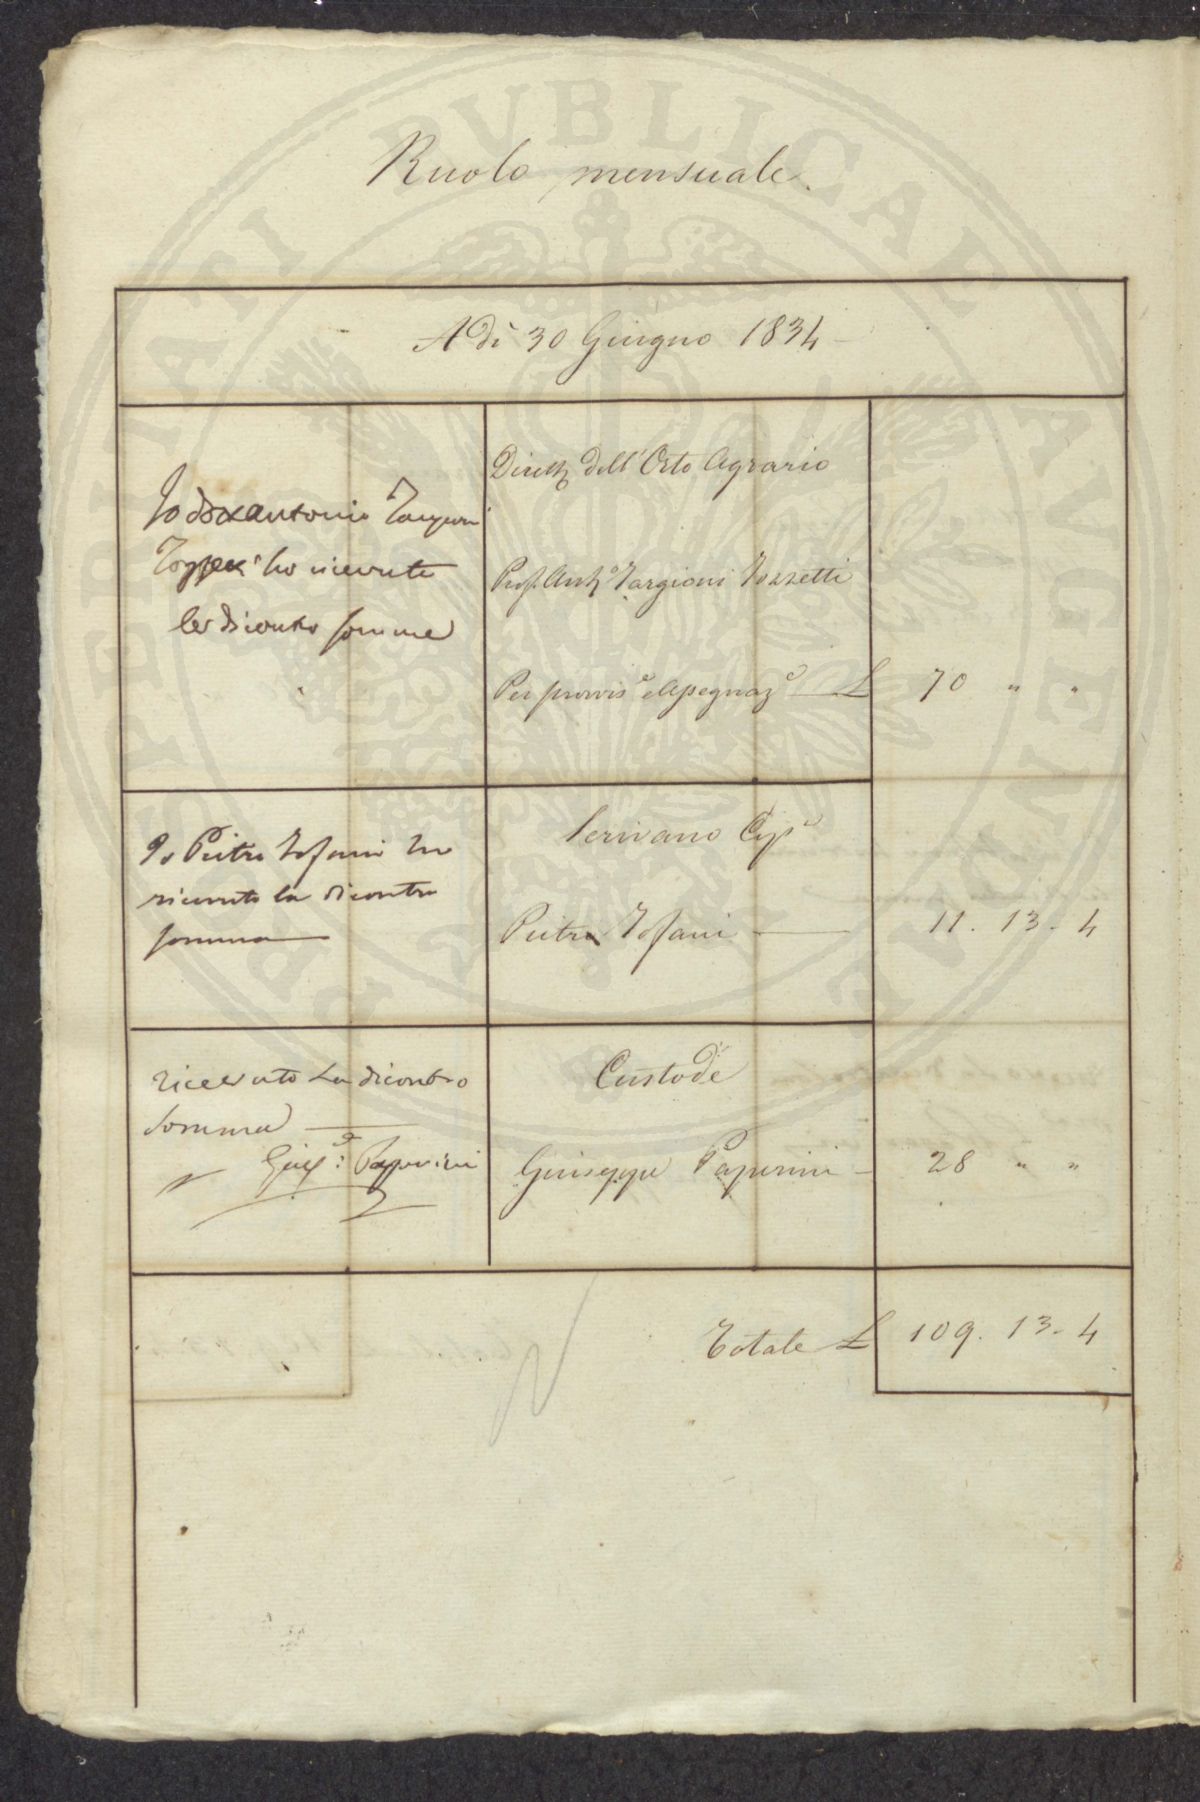 Ruolo mensuale.
A dì 30 Giugno 1834
Io dott antonio Targioni
Tozzetti ho ricevuto
la dicontro somma
Dirett.e dell'Orto Agrario
Prof. Ant.o Targioni Tozzetti
Per provvis.e e Assegnaz.e £ 70 " "
Io Pietro Tofani ho
ricevuto la dicontro
somma
Scrivano
Pietro Tofani 11. 13. 4
ricevuto La dicontro
somma
Gius.e: Paperini
Custode
Giuseppe Paperini 28 " "
Totale £ 109. 13. 4
PVBLICAE